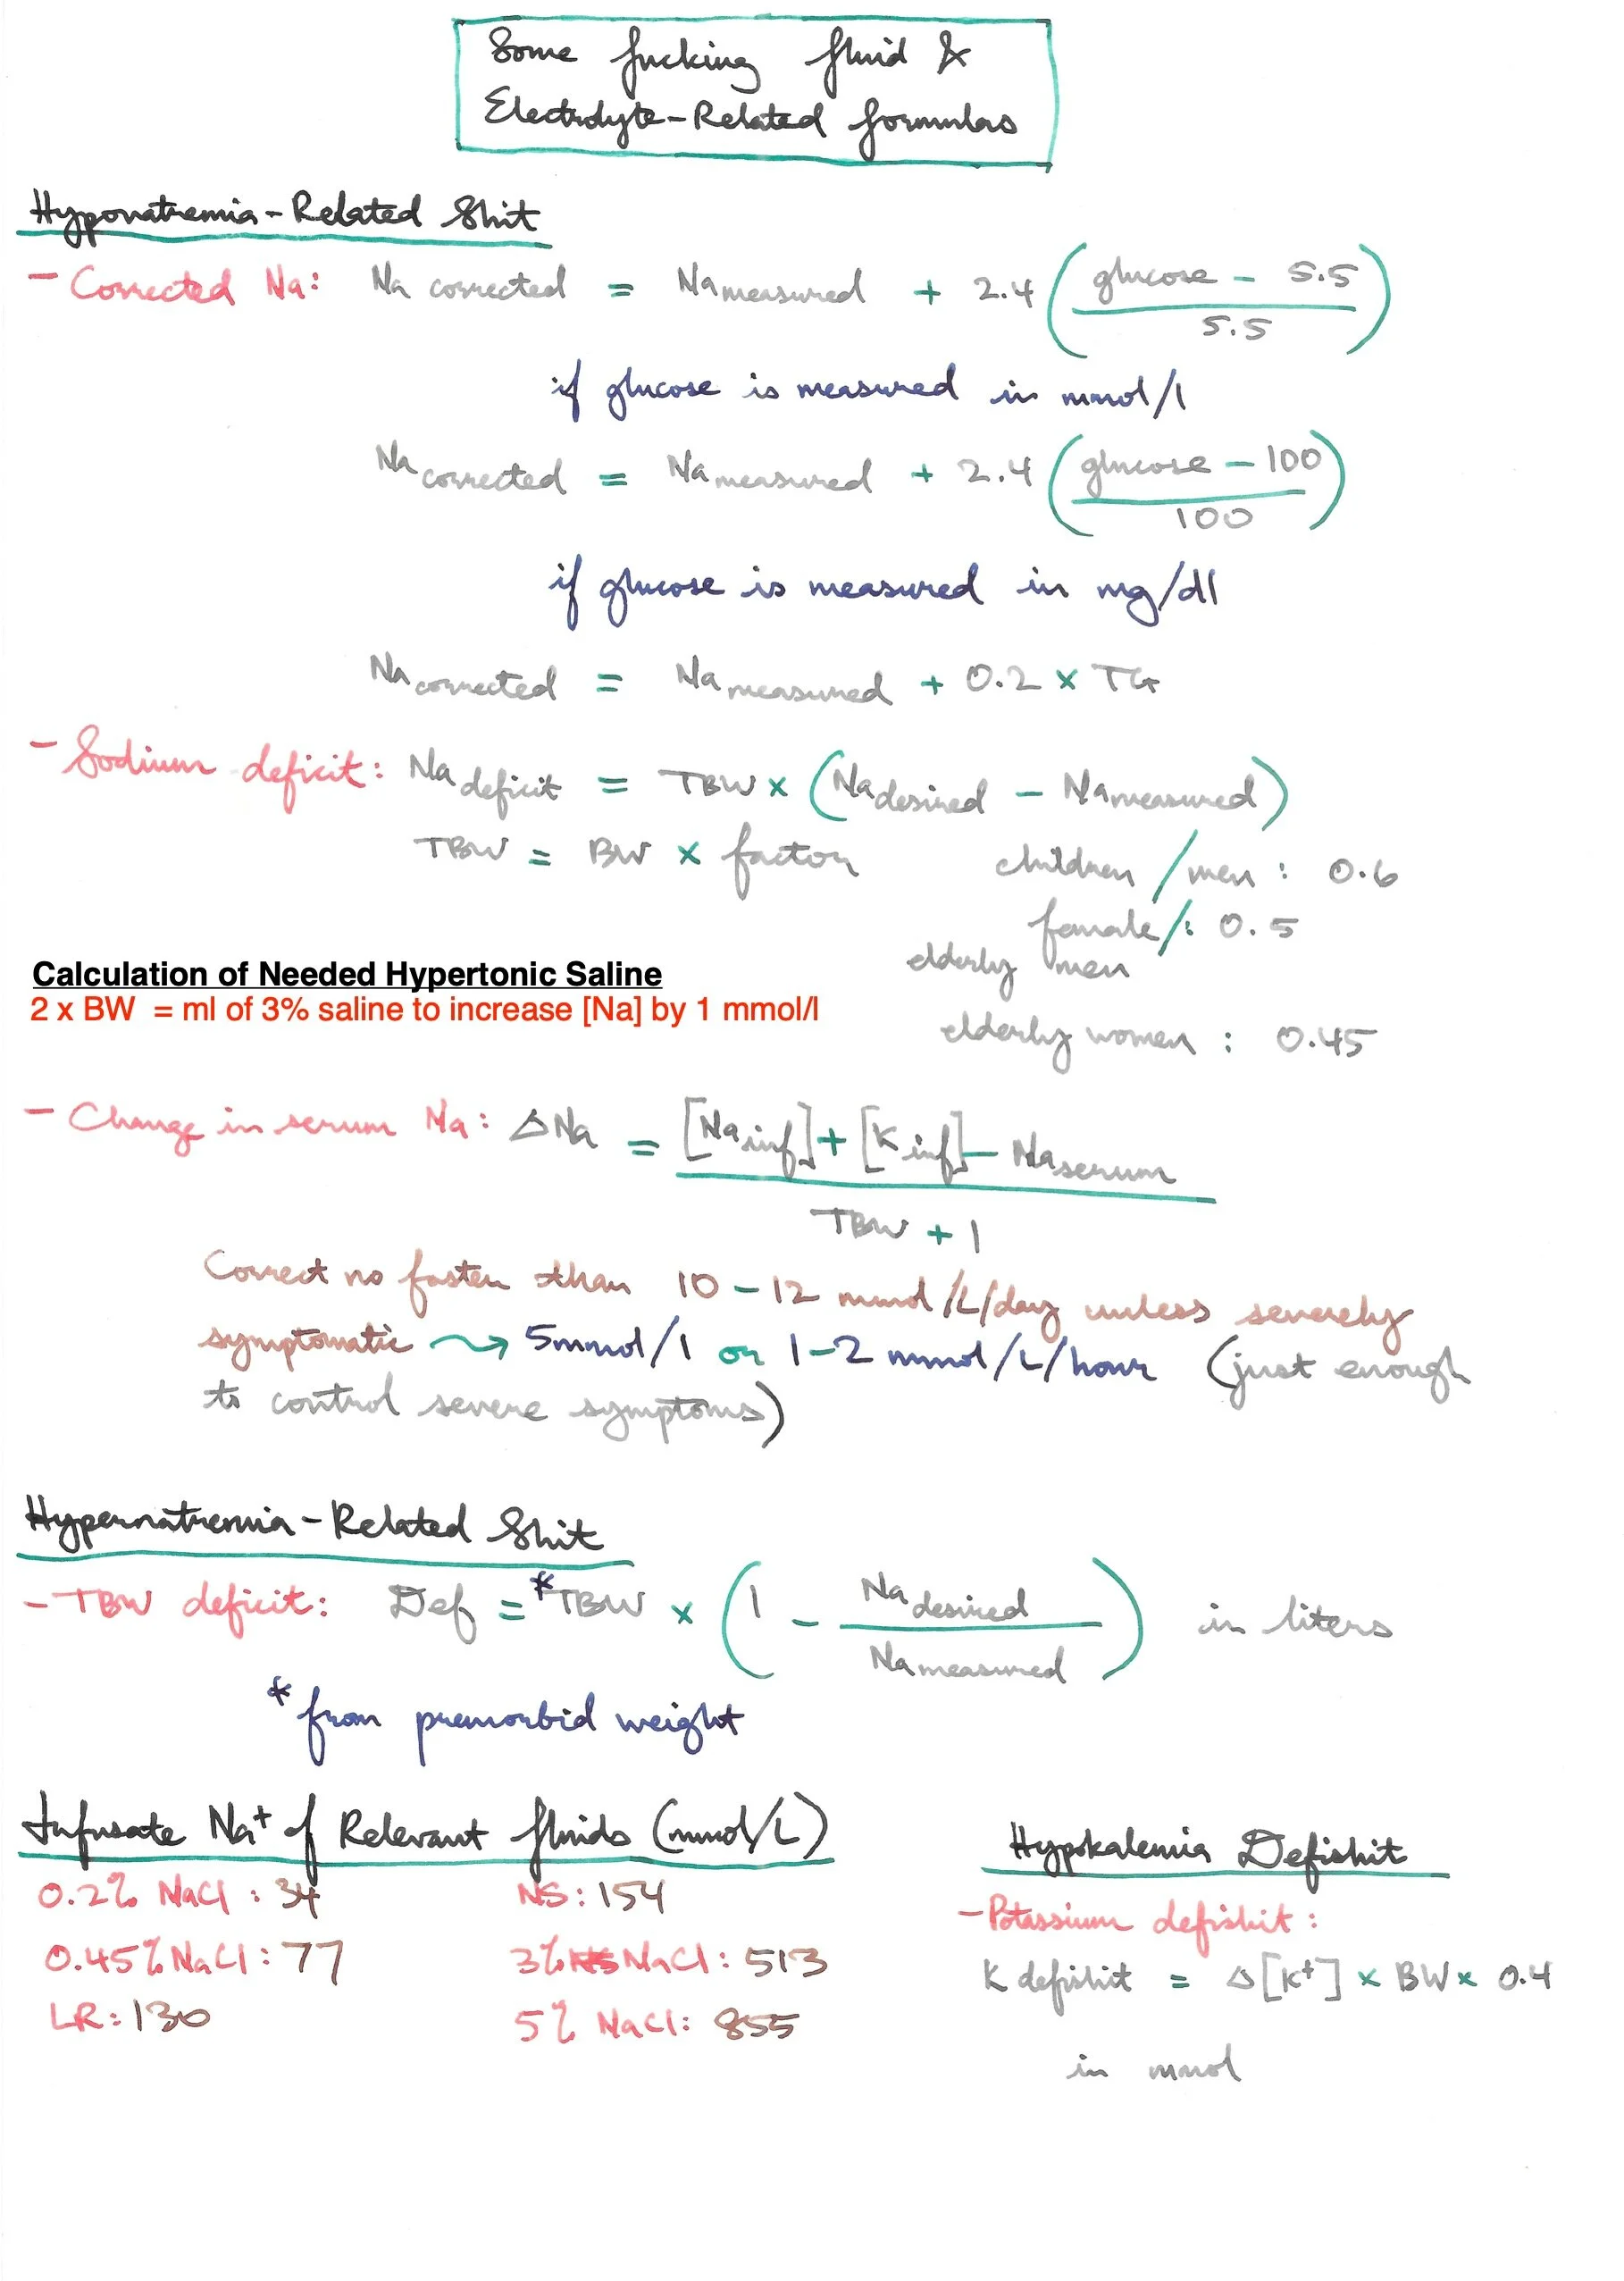 Some fucking fluid &
Electrolyte-Related formulas
Hyponatremia-Related Shit
- Corrected Na: Na corrected = Na measured + 2.4 ( glucose - 5.5 / 5.5 )
if glucose is measured in mmol/l
Na corrected = Na measured + 2.4 ( glucose - 100 / 100 )
if glucose is measured in mg/dl
Na corrected = Na measured + 0.2 x TG
- Sodium deficit: Na deficit = TBW x (Na desired - Na measured)
TBW = BW x factor
children / men : 0.6
female / : 0.5
elderly men
elderly women : 0.45
Calculation of Needed Hypertonic Saline
2 x BW = ml of 3% saline to increase [Na] by 1 mmol/l
- Change in serum Na: ΔNa = [Na inf] + [K inf] - Na serum
TBW + 1
Correct no faster than 10 - 12 mmol/L/day unless severely
symptomatic ⇝ 5mmol/l or 1-2 mmol/L/hour (just enough
to control severe symptoms)
Hypernatremia-Related Shit
- TBW deficit: Def = *TBW x ( 1 - Na desired / Na measured ) in liters
* from premorbid weight
Infusate Na+ of Relevant fluids (mmol/L)
0.2% NaCl : 34
NS: 154
0.45% NaCl : 77
3% NaCl : 513
LR: 130
5% NaCl: 855
Hypokalemia Defishit
- Potassium defishit :
K defishit = Δ[K+] x BW x 0.4
in mmol